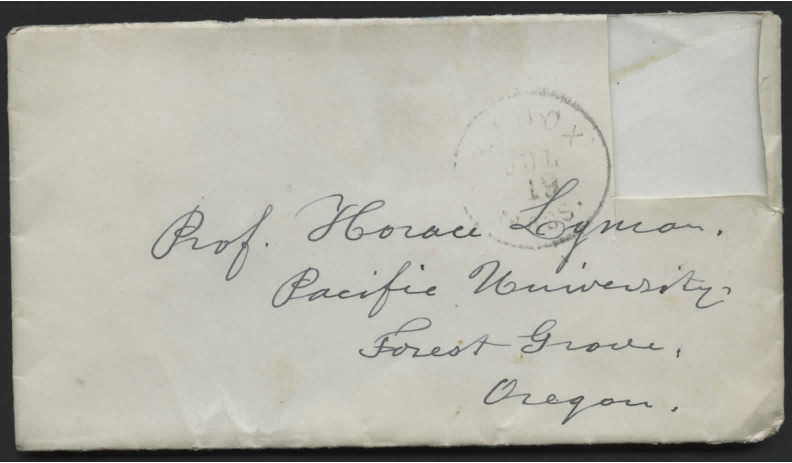 JUL
19
Prof. Horace Lyman.
Pacific University.
Forest Grove.
Oregon.